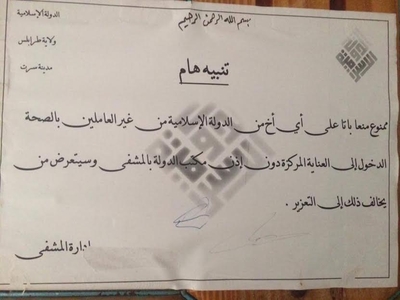 بسم الله الرحمن الرحيم
الدولة الإسلامية
ولاية طرابلس
مدينة سرت
تنبيه هام
ممنوع منعا باتا على أي أخ من الدولة الإسلامية من غير العاملين بالصحة
الدخول إلى العناية المركزة دون إذن مكتب الدولة بالمشفى وسيتعرض من
يخالف ذلك إلى التعزير .
إدارة المشفى